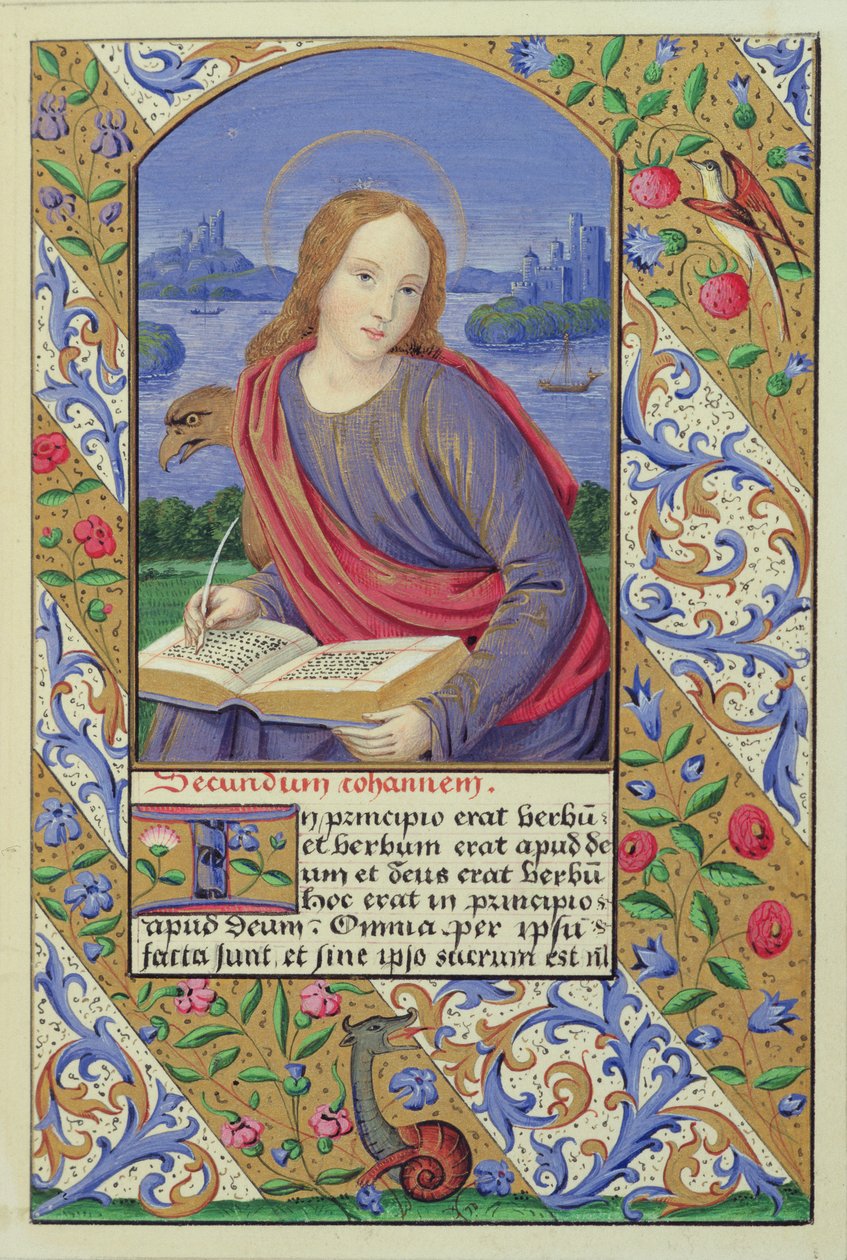 Secundum iohannem.
In principio erat verbū
et verbum erat apud de
um et deus erat verbū
hoc erat in principio
apud deum: Omnia per ipsū
facta sunt, et sine ipso est nl